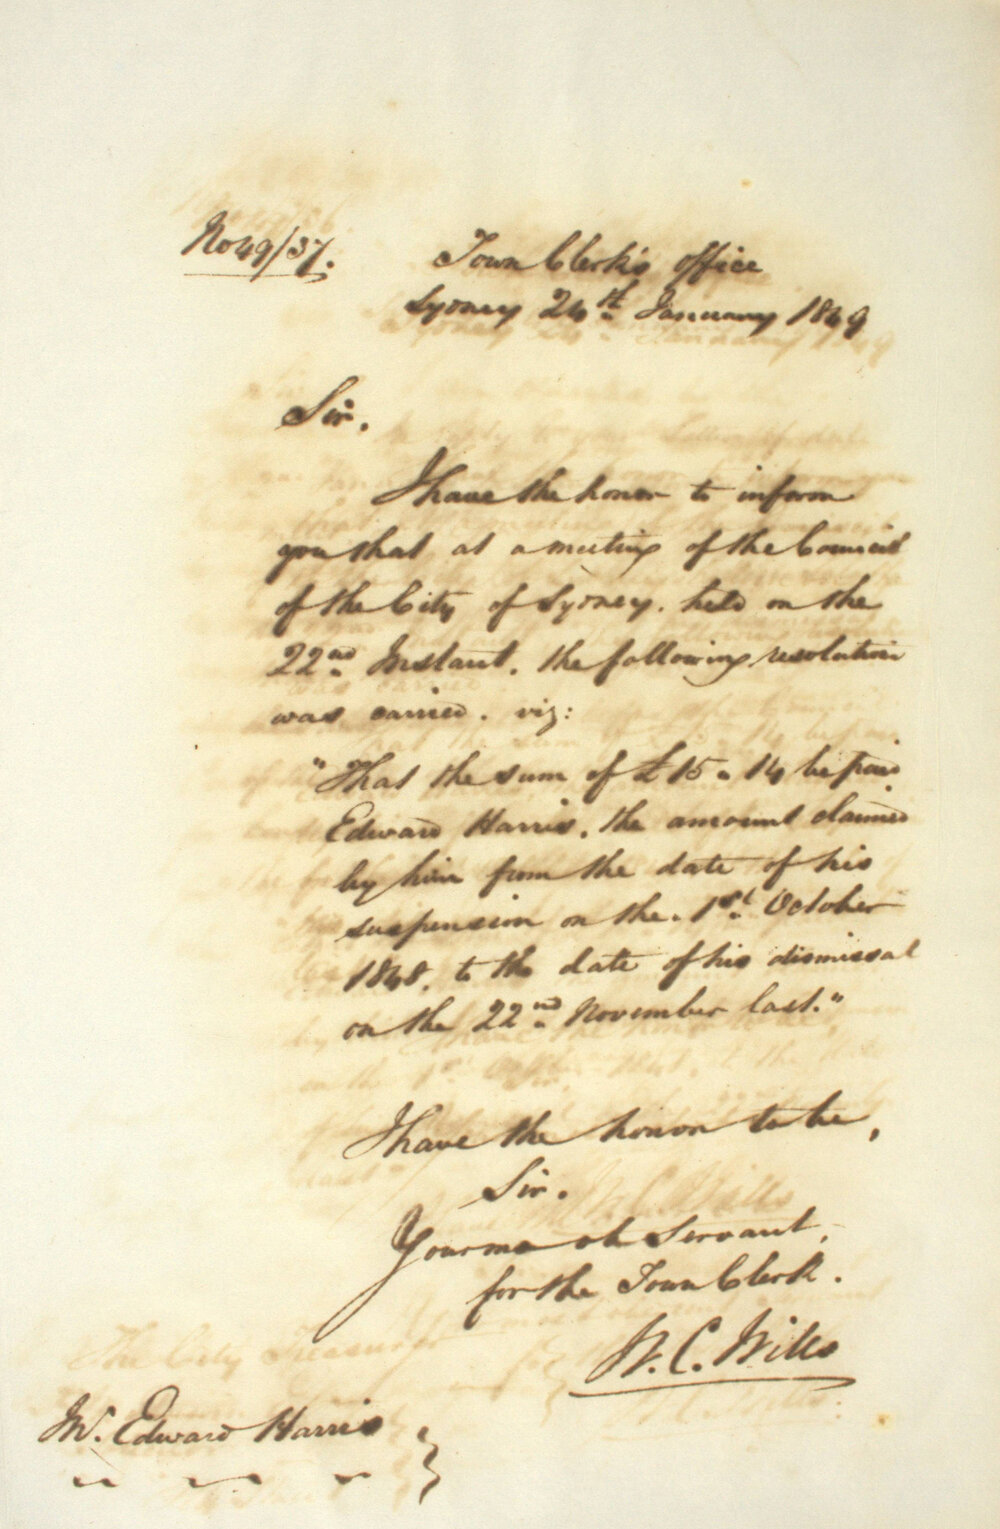 No 49/37.
Town Clerk's office
Sydney 24th January 1849
Sir,
I have the honor to inform
you that at a meeting of the Council
of the City of Sydney, held on the
22nd Instant, the following resolution
was carried. viz:
"That the sum of £15 " 14 be paid
Edward Harris, the amount claimed
by him from the date of his
suspension on the 1st October
1848, to the date of his dismissal
on the 22nd November last."
I have the honor to be,
Sir.
Your mo ob Servant,
for the Town Clerk.
W. C. Wills
Mr. Edward Harris